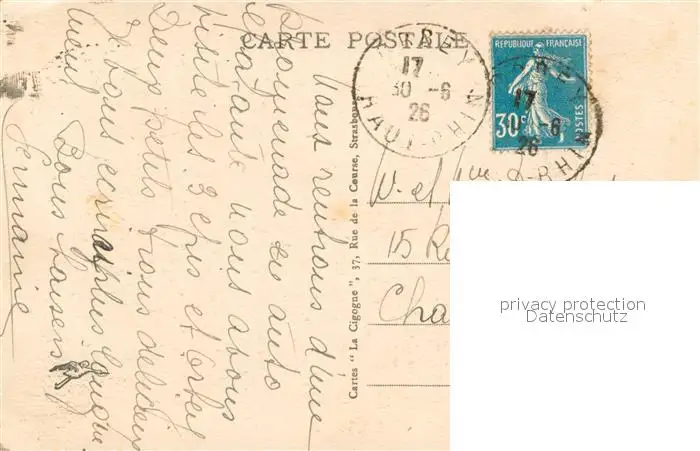 CARTE POSTALE
Nous rentrons d'une
promenade en auto
epatante nous avons
visité les 3 Epis et Orbey
Deux petits trous delicieux
Je vous ecrirai plus longue
ment
Bons baisers
Germaine
Cartes "La Cigogne", 37, Rue de la Course, Strasbourg
17
30 -6
26
HAUT-RHIN
REPUBLIQUE FRANÇAISE
30c
POSTES
17
6
26
-RHIN
M. et Mme
15 R
Cha
privacy protection
Datenschutz